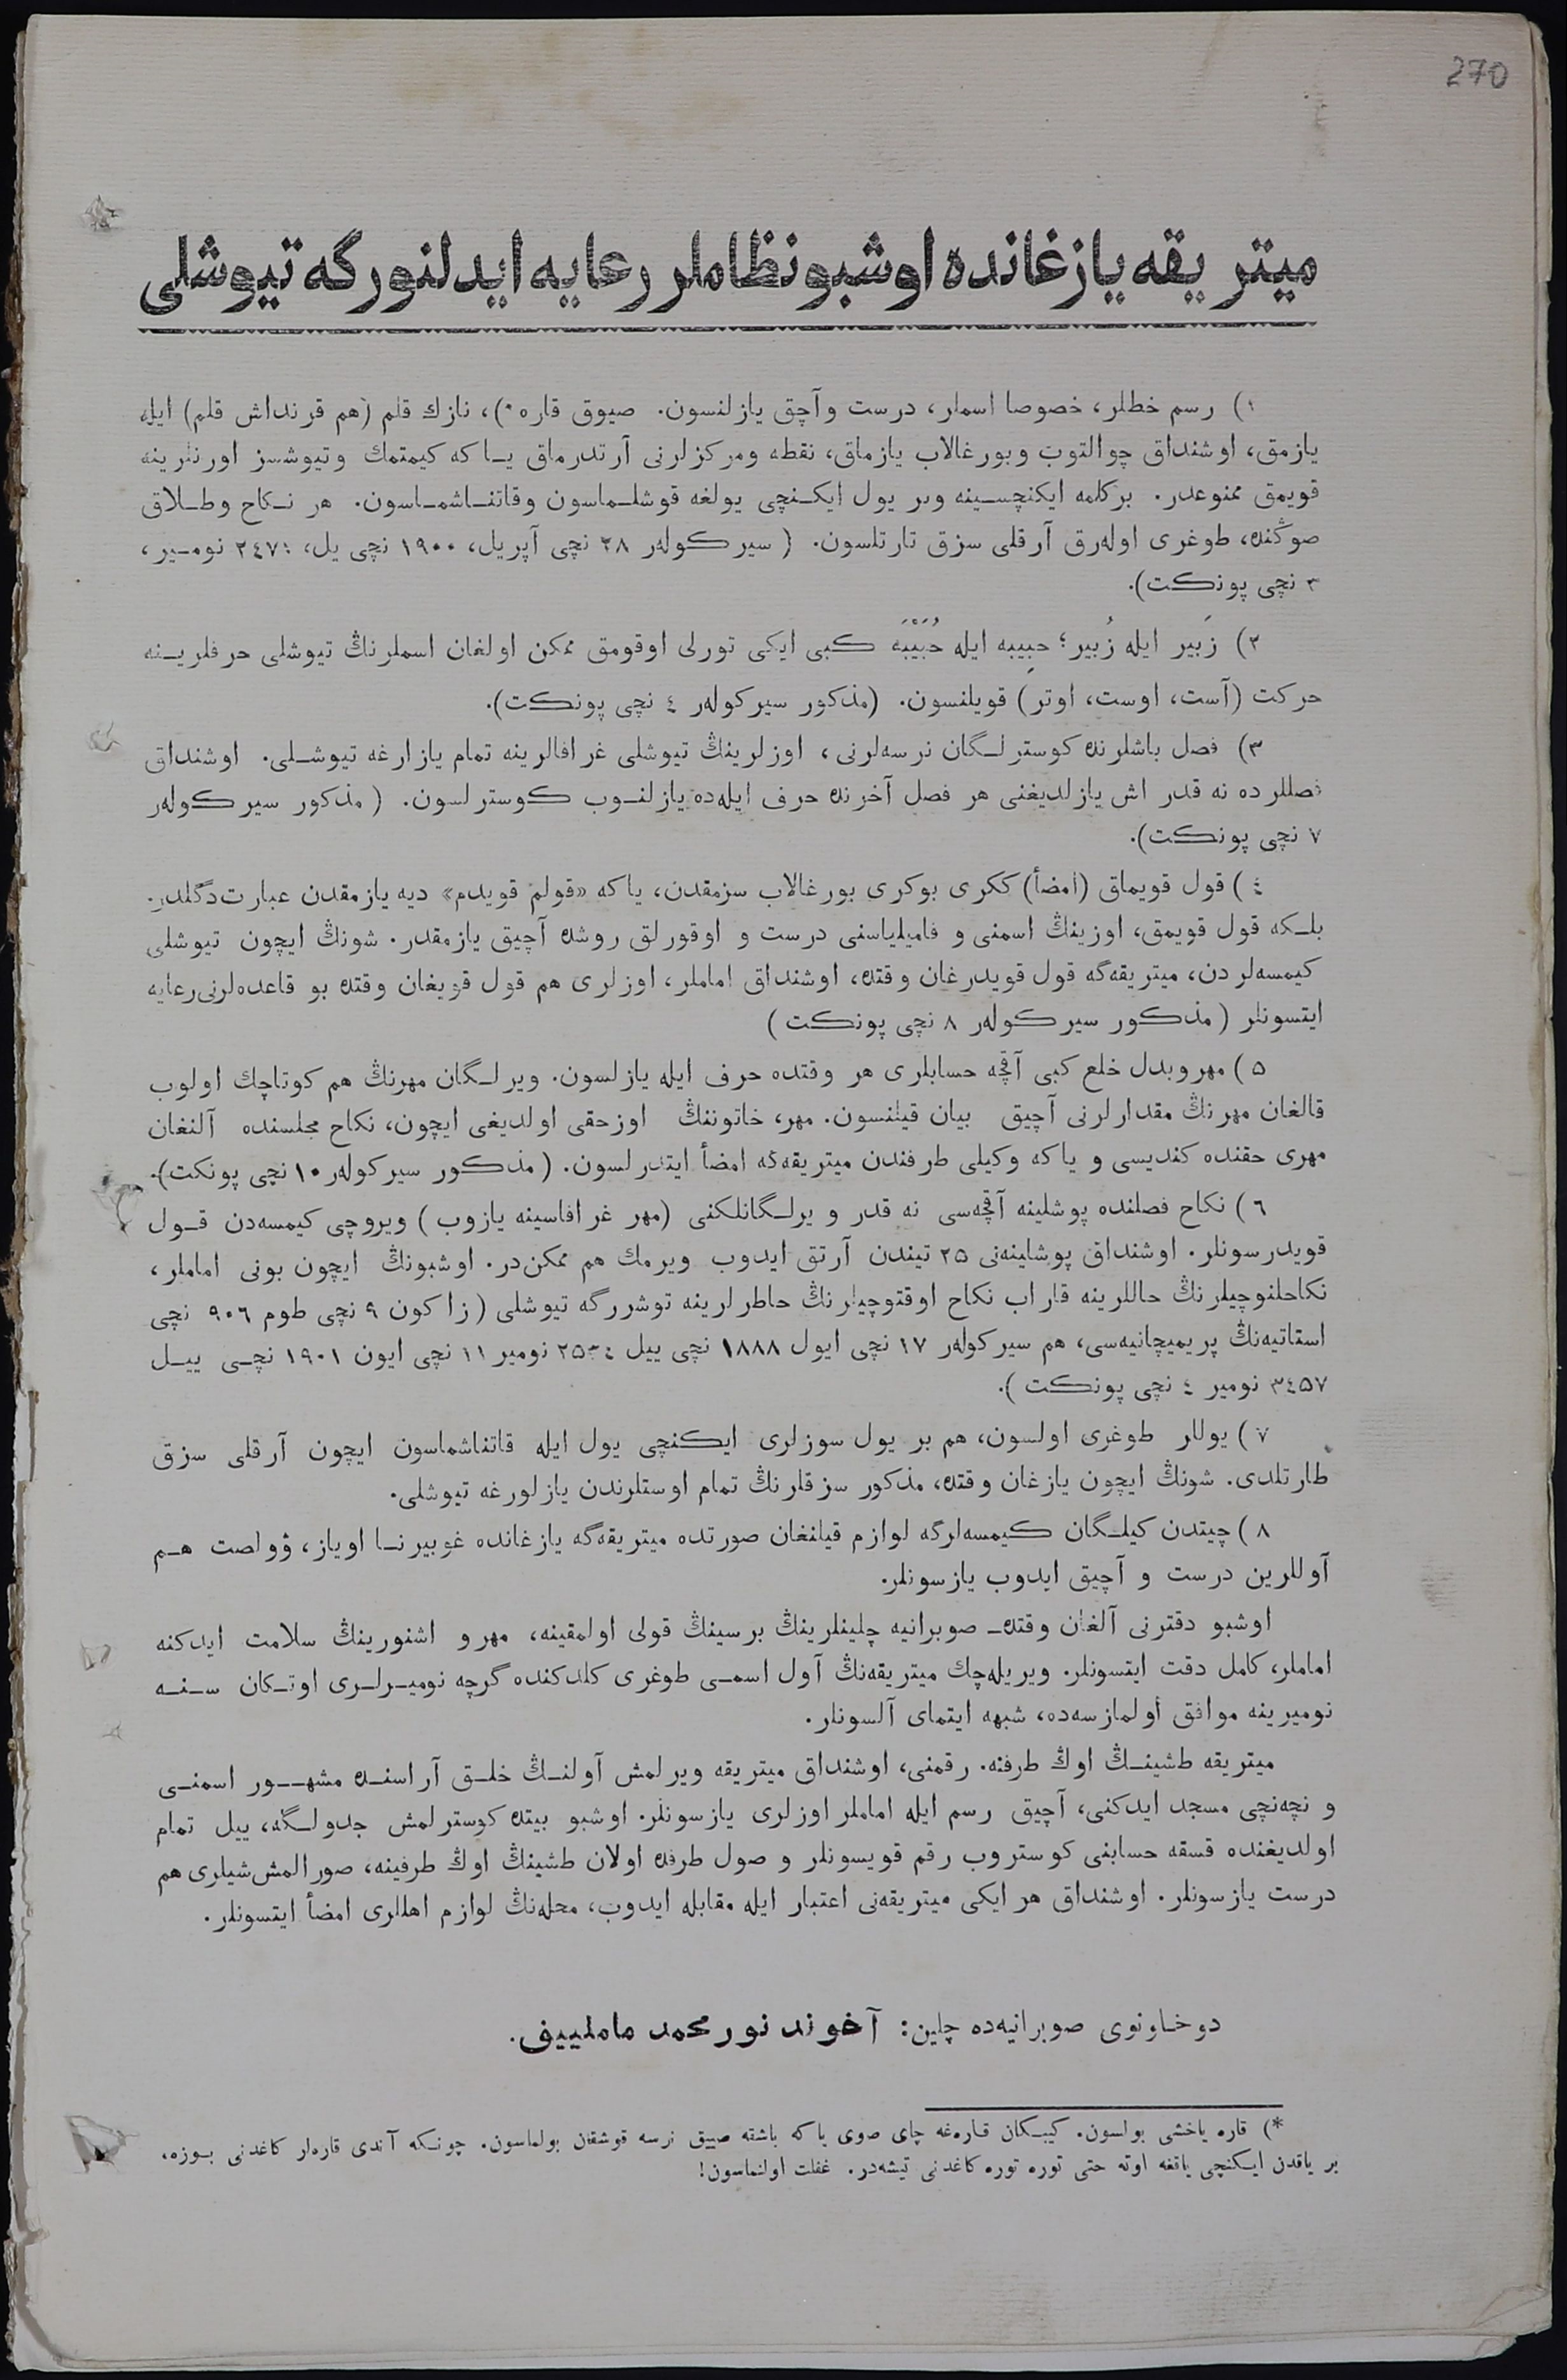 270
ميتريقه يازغانده اوشبو نظاملر رعايه ايدلنورگه تيوشلى
١) رسم خطلر، خصوصا اسملر، درست وآچق يازلنسون. صيوق قاره *)، نازك قلم (هم قرنداش قلم) ايله
يازمق، اوشنداق چوالتوب وبورغالاب يازماق، نقطه ومركزلرنى آرتدرماق يــا كه كيمتمك وتيوشسز اورنلرينه
قويمق ممنوعدر. بركلمه ايكنچسـينه وبر يول ايكـنچى يولغه قوشلـماسون وقاتنـاشمـاسون. هر نـكاح وطـلاق
صوڭنده، طوغرى اولەرق آرقلى سزق تارتلسون. (سيركولەر ٢٨ نچى آپريل، ١٩٠٠ نچى يل، ٢٤٧١ نوميـر،
٣ نچى پونكت).
٢) زَبير ايله زُبير؛ حبِيبه ايله حُبَيْبَه كبى ايكى تورلى اوقومق ممكن اولغان اسملرنڭ تيوشلى حرفلريـنه
حركت (آست، اوست، اوتر) قويلنسون. (مذكور سيركولەر ٤ نچى پونكت).
٣) فصل باشلرنده كوسترلـگان نرسەلرنى، اوزلرينڭ تيوشلى غرافالرينه تمام يازارغه تيوشـلى. اوشنداق
فصللرده نه قدر اش يازلديغنى هر فصل آخرنده حرف ايلەده يازلنـوب كوسترلسون. (مذكور سيركولەر
٧ نچى پونكت).
٤) قول قويماق (امضأ) ككرى بوكرى بورغالاب سزمقدن، ياكه «قولم قويدم» ديه يازمقدن عبارت دگلدر.
بلـكه قول قويمق، اوزينڭ اسمنى و فاميلياسنى درست و اوقورلق روشده آچيق يازمقدر. شونڭ ايچون تيوشلى
كيمسەلردن، ميتريقەگه قول قويدرغان وقتده، اوشنداق اماملر، اوزلرى هم قول قويغان وقتده بو قاعدەلرنى رعايه
ايتسونلر (مذكور سيركولەر ٨ نچى پونكت)
٥) مهروبدل خلع كبى آقچه حسابلرى هر وقتده حرف ايله يازلسون. ويرلـگان مهرنڭ هم كوتاچك اولوب
قالغان مهرنڭ مقدارلرنى آچيق بيان قيلنسون. مهر، خاتوننڭ اوزحقى اولديغى ايچون، نكاح مجلسنده آلنغان
مهرى حقنده كنديسى و ياكه وكيلى طرفندن ميتريقەگه امضأ ايتدرلسون. (مذكور سيركولەر ١٠ نچى پونكت).
٦) نكاح فصلنده پوشلينه آقچەسى نه قدر و يرلـگانلكنى (مهر غرافاسينه يازوب) ويروچى كيمسەدن قـول
قويدرسونلر. اوشنداق پوشلينەنى ٢٥ تيندن آرتق ايدوب ويرمك هم ممكن در. اوشبونڭ ايچون بونى اماملر،
نكاحلنوچيلرنڭ حاللرينه قاراب نكاح اوقتوچيلرنڭ خاطرلرينه توشررگه تيوشلى (زاكون ٩ نچى طوم ٩٠٦ نچى
استاتيەنڭ پريميچانيەسى، هم سيركولەر ١٧ نچى ايول ١٨٨٨ نچى ييل ٢٥٣٤ نومير ١١ نچى ايون ١٩٠١ نچـى ييـل
٣٤٥٧ نومير ٤ نچى پونكت).
٧) يوللر طوغرى اولسون، هم بر يول سوزلرى ايكنچى يول ايله قاتناشماسون ايچون آرقلى سزق
طارتلدى. شونڭ ايچون يازغان وقتده، مذكور سزقلرنڭ تمام اوستلرندن يازلورغه تيوشلى.
٨) چيتدن كيلـگان كيمسەلرگه لوازم قيلنغان صورتده ميتريقەگه يازغانده غوبيرنـا اوياز، ۋولصت هـم
آوللرين درست و آچيق ايدوب يازسونلر.
اوشبو دفترنى آلغان وقتده صوبرانيه چلينلرينڭ برسينڭ قولى اولمقينه، مهر و اشنورينڭ سلامت ايدكنه
اماملر، كامل دقت ايتسونلر. ويريلەچك ميتريقەنڭ آول اسمـى طوغرى كلدكنده گرچه نوميـرلـرى اوتـكان سـنـه
نوميرينه موافق اولمازسەده، شبهه ايتماى آلسونلر.
ميتريقه طشينـڭ اوڭ طرفنه. رقمنى، اوشنداق ميتريقه ويرلمش آولنـڭ خلـق آراسنـده مشهــور اسمنـى
و نچەنچى مسجد ايدكنى، آچيق رسم ايله اماملر اوزلرى يازسونلر. اوشبو بيتده كوسترلمش جدولـگه، ييل تمام
اولديغنده قسقه حسابنى كوستروب رقم قويسونلر و صول طرفده اولان طشينڭ اوڭ طرفينه، صورالمش شيلرى هم
درست يازسونلر. اوشنداق هر ايكى ميتريقەنى اعتبار ايله مقابله ايدوب، محلەنڭ لوازم اهللرى امضأ ايتسونلر.
دوخاونوى صوبرانيەده چلين: آخوند نور محمد ماملييف.
*) قاره ياخشى بولسون. كيبـكان قارەغه چاى صوى ياكه باشقه صييق نرسه قوشقان بولماسون. چونـكه آندى قارەلر كاغدنى بـوزه،
بر ياقدن ايـكنچى ياققه اوته حتى توره توره كاغدنى تيشەدر. غفلت اولنماسون!